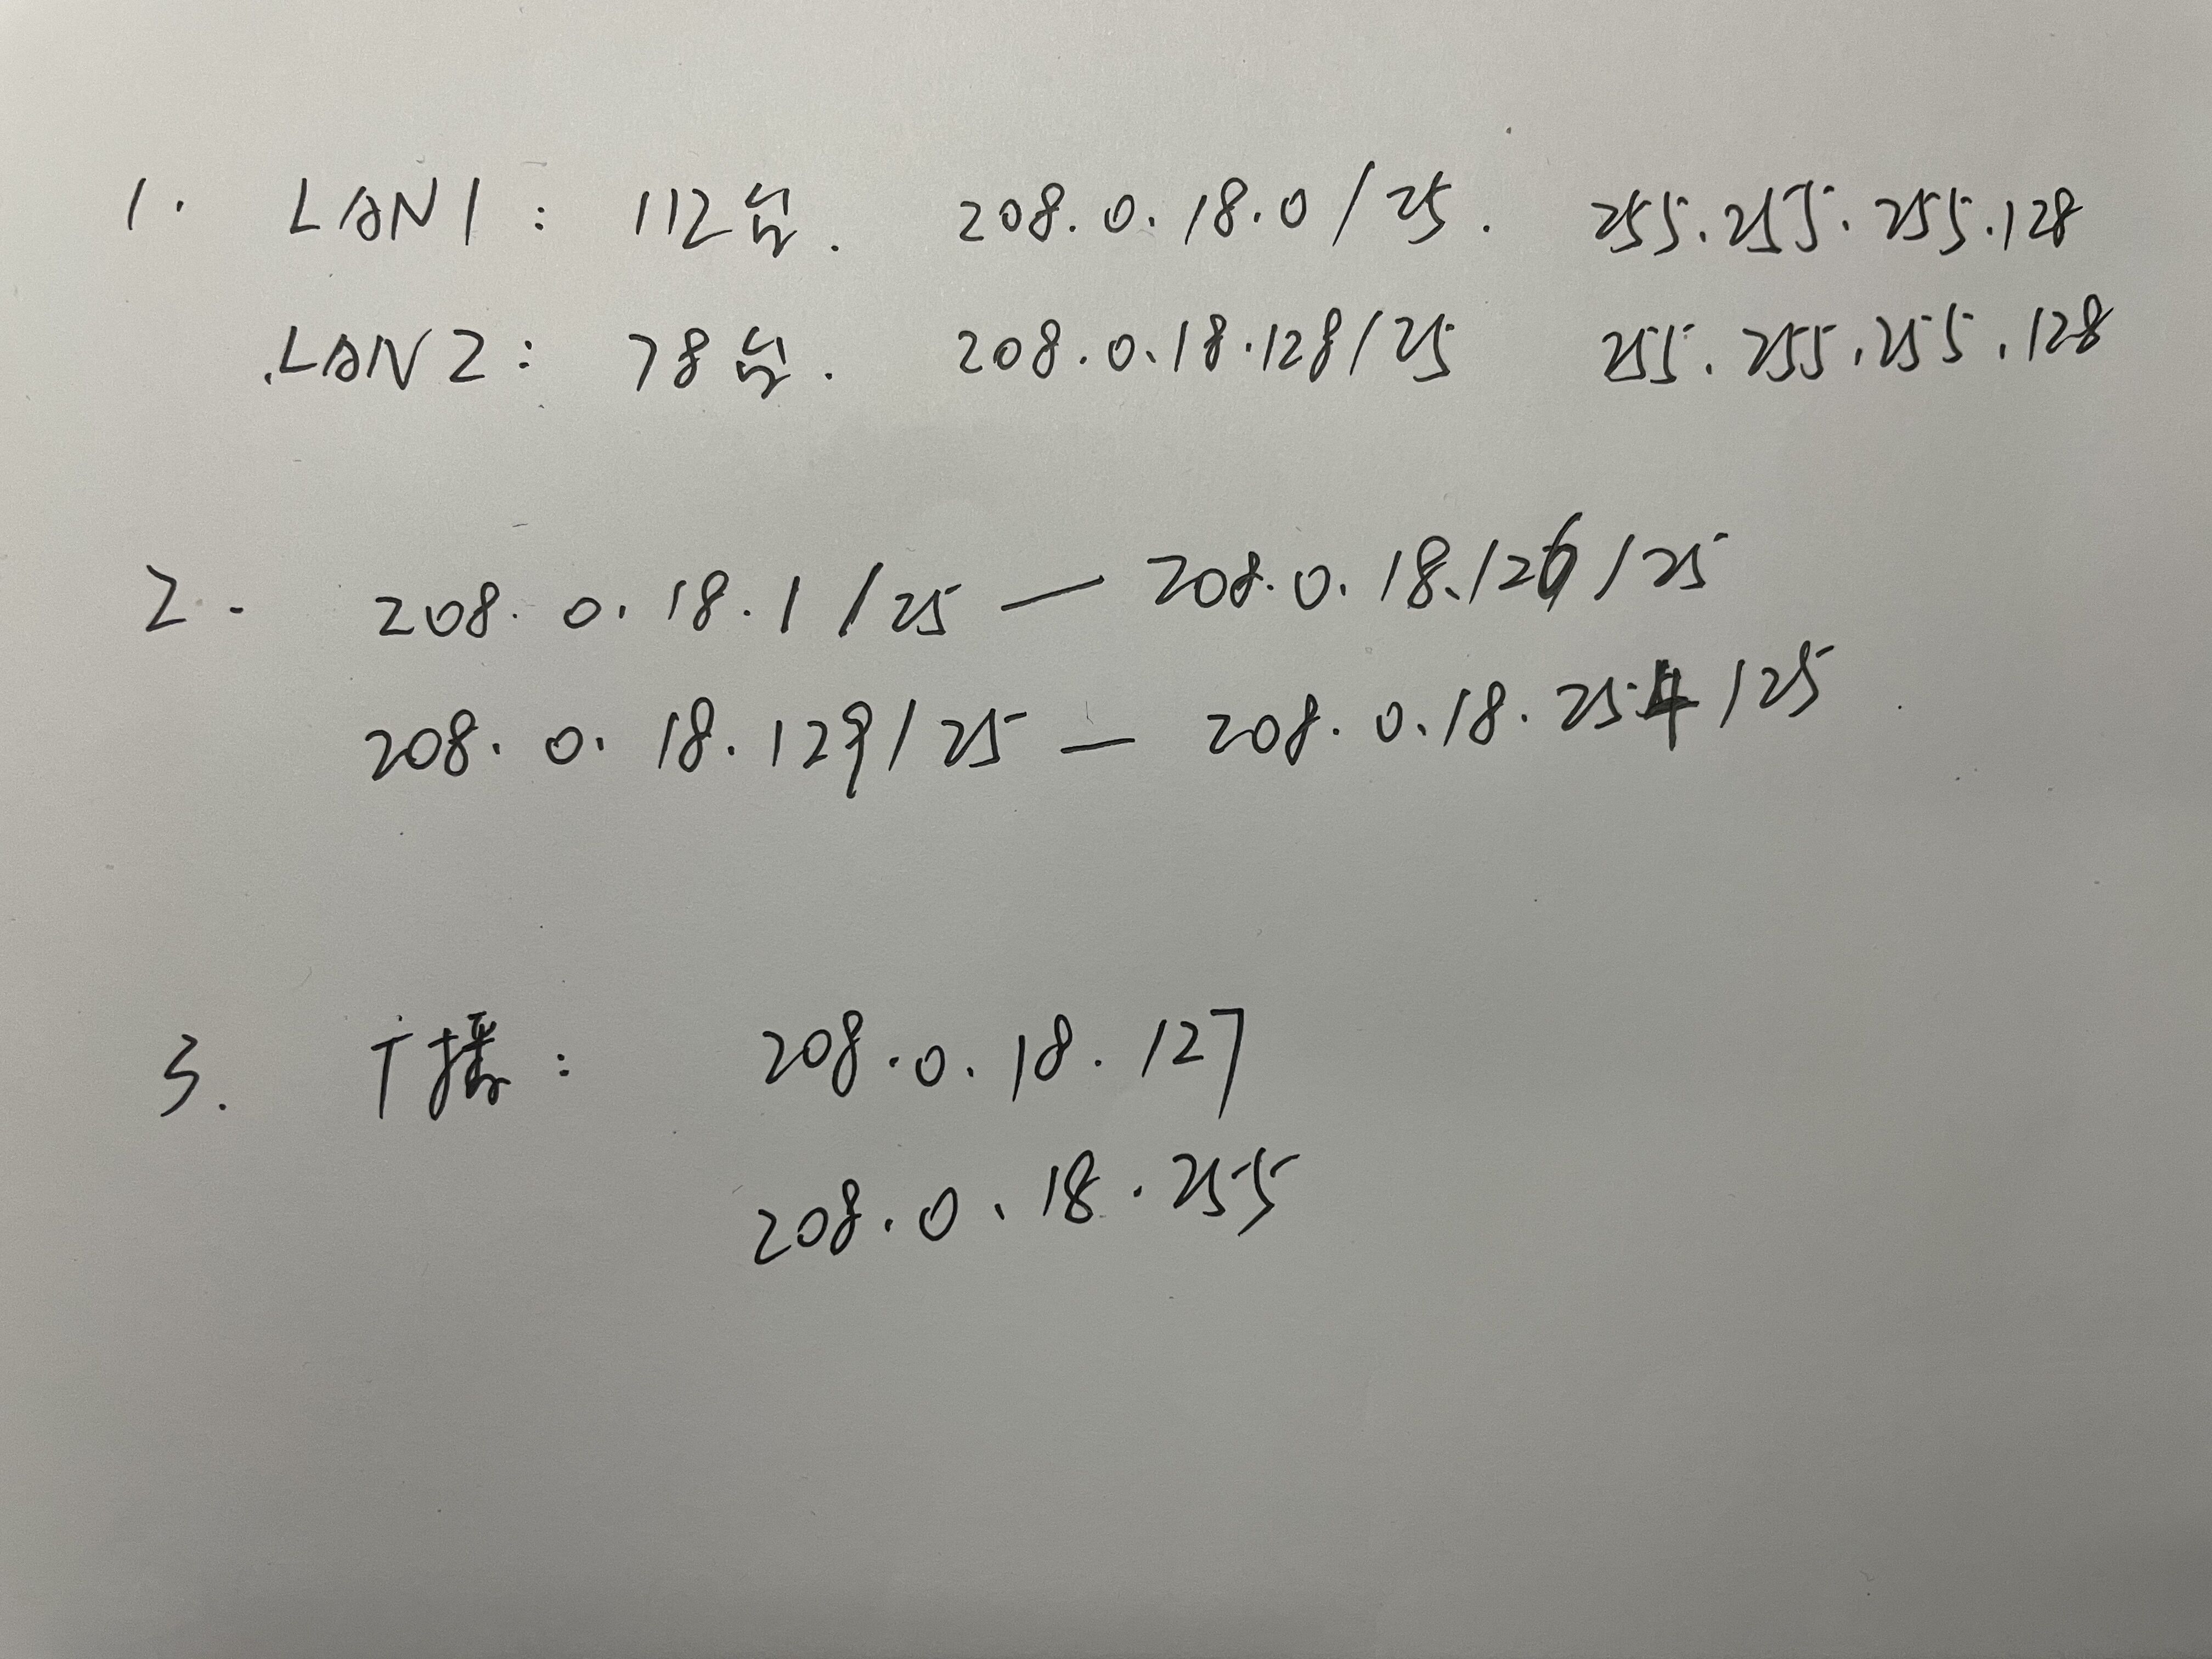 1. LAN1: 112台. 208.0.18.0/25. 255.255.255.128
LAN2: 78台. 208.0.18.128/25 255.255.255.128
2. 208.0.18.1/25 — 208.0.18.126/25
208.0.18.129/25 — 208.0.18.254/25
3. 广播: 208.0.18.127
208.0.18.255